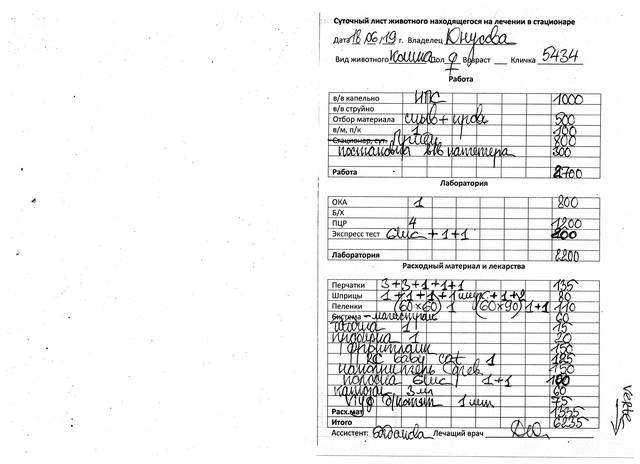 Суточный лист животного находящегося на лечении в стационаре
Дата 18/06/19 г. Владелец Юнусова
Вид животного кошка Пол ♀ Возраст Кличка 5434
Работа
в/в капельно ИПС 1000
в/в струйно
Отбор материала смыв + кровь 500
в/м, п/к 1 100
Стационар, сут. 800
постановка в/в катетера 300
Работа 2700
Лаборатория
ОКА 1 800
Б/Х
ПЦР 4 1200
Экспресс тест Gluc + 1+1 200
Лаборатория 2200
Расходный материал и лекарства
Перчатки 3+3+1+1+1 135
Шприцы 1+1+1+1 +1+2 80
Пеленки (60×60) 1 (60×90) 1+1 110
Система - магистраль 60
1 15
1 20
150
RC baby cat 1 185
150
полоска Gluc 1+1 100
3 м 60
1 75
Расх.мат 1335
Итого 6235
Ассистент: Богданова Лечащий врач